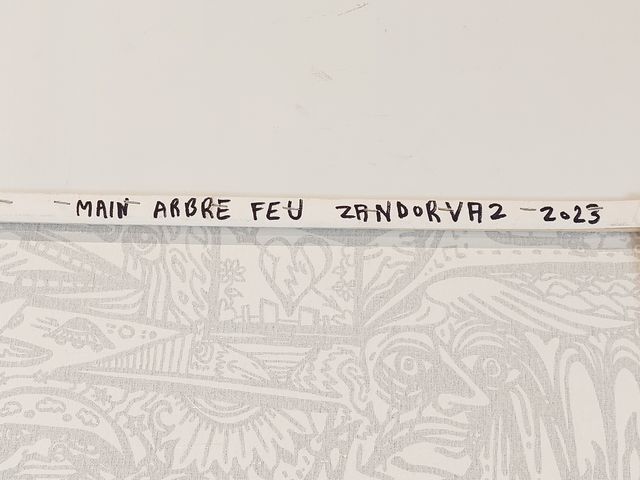 MAIN ARBRE FEU ZANDORVAZ - 2023